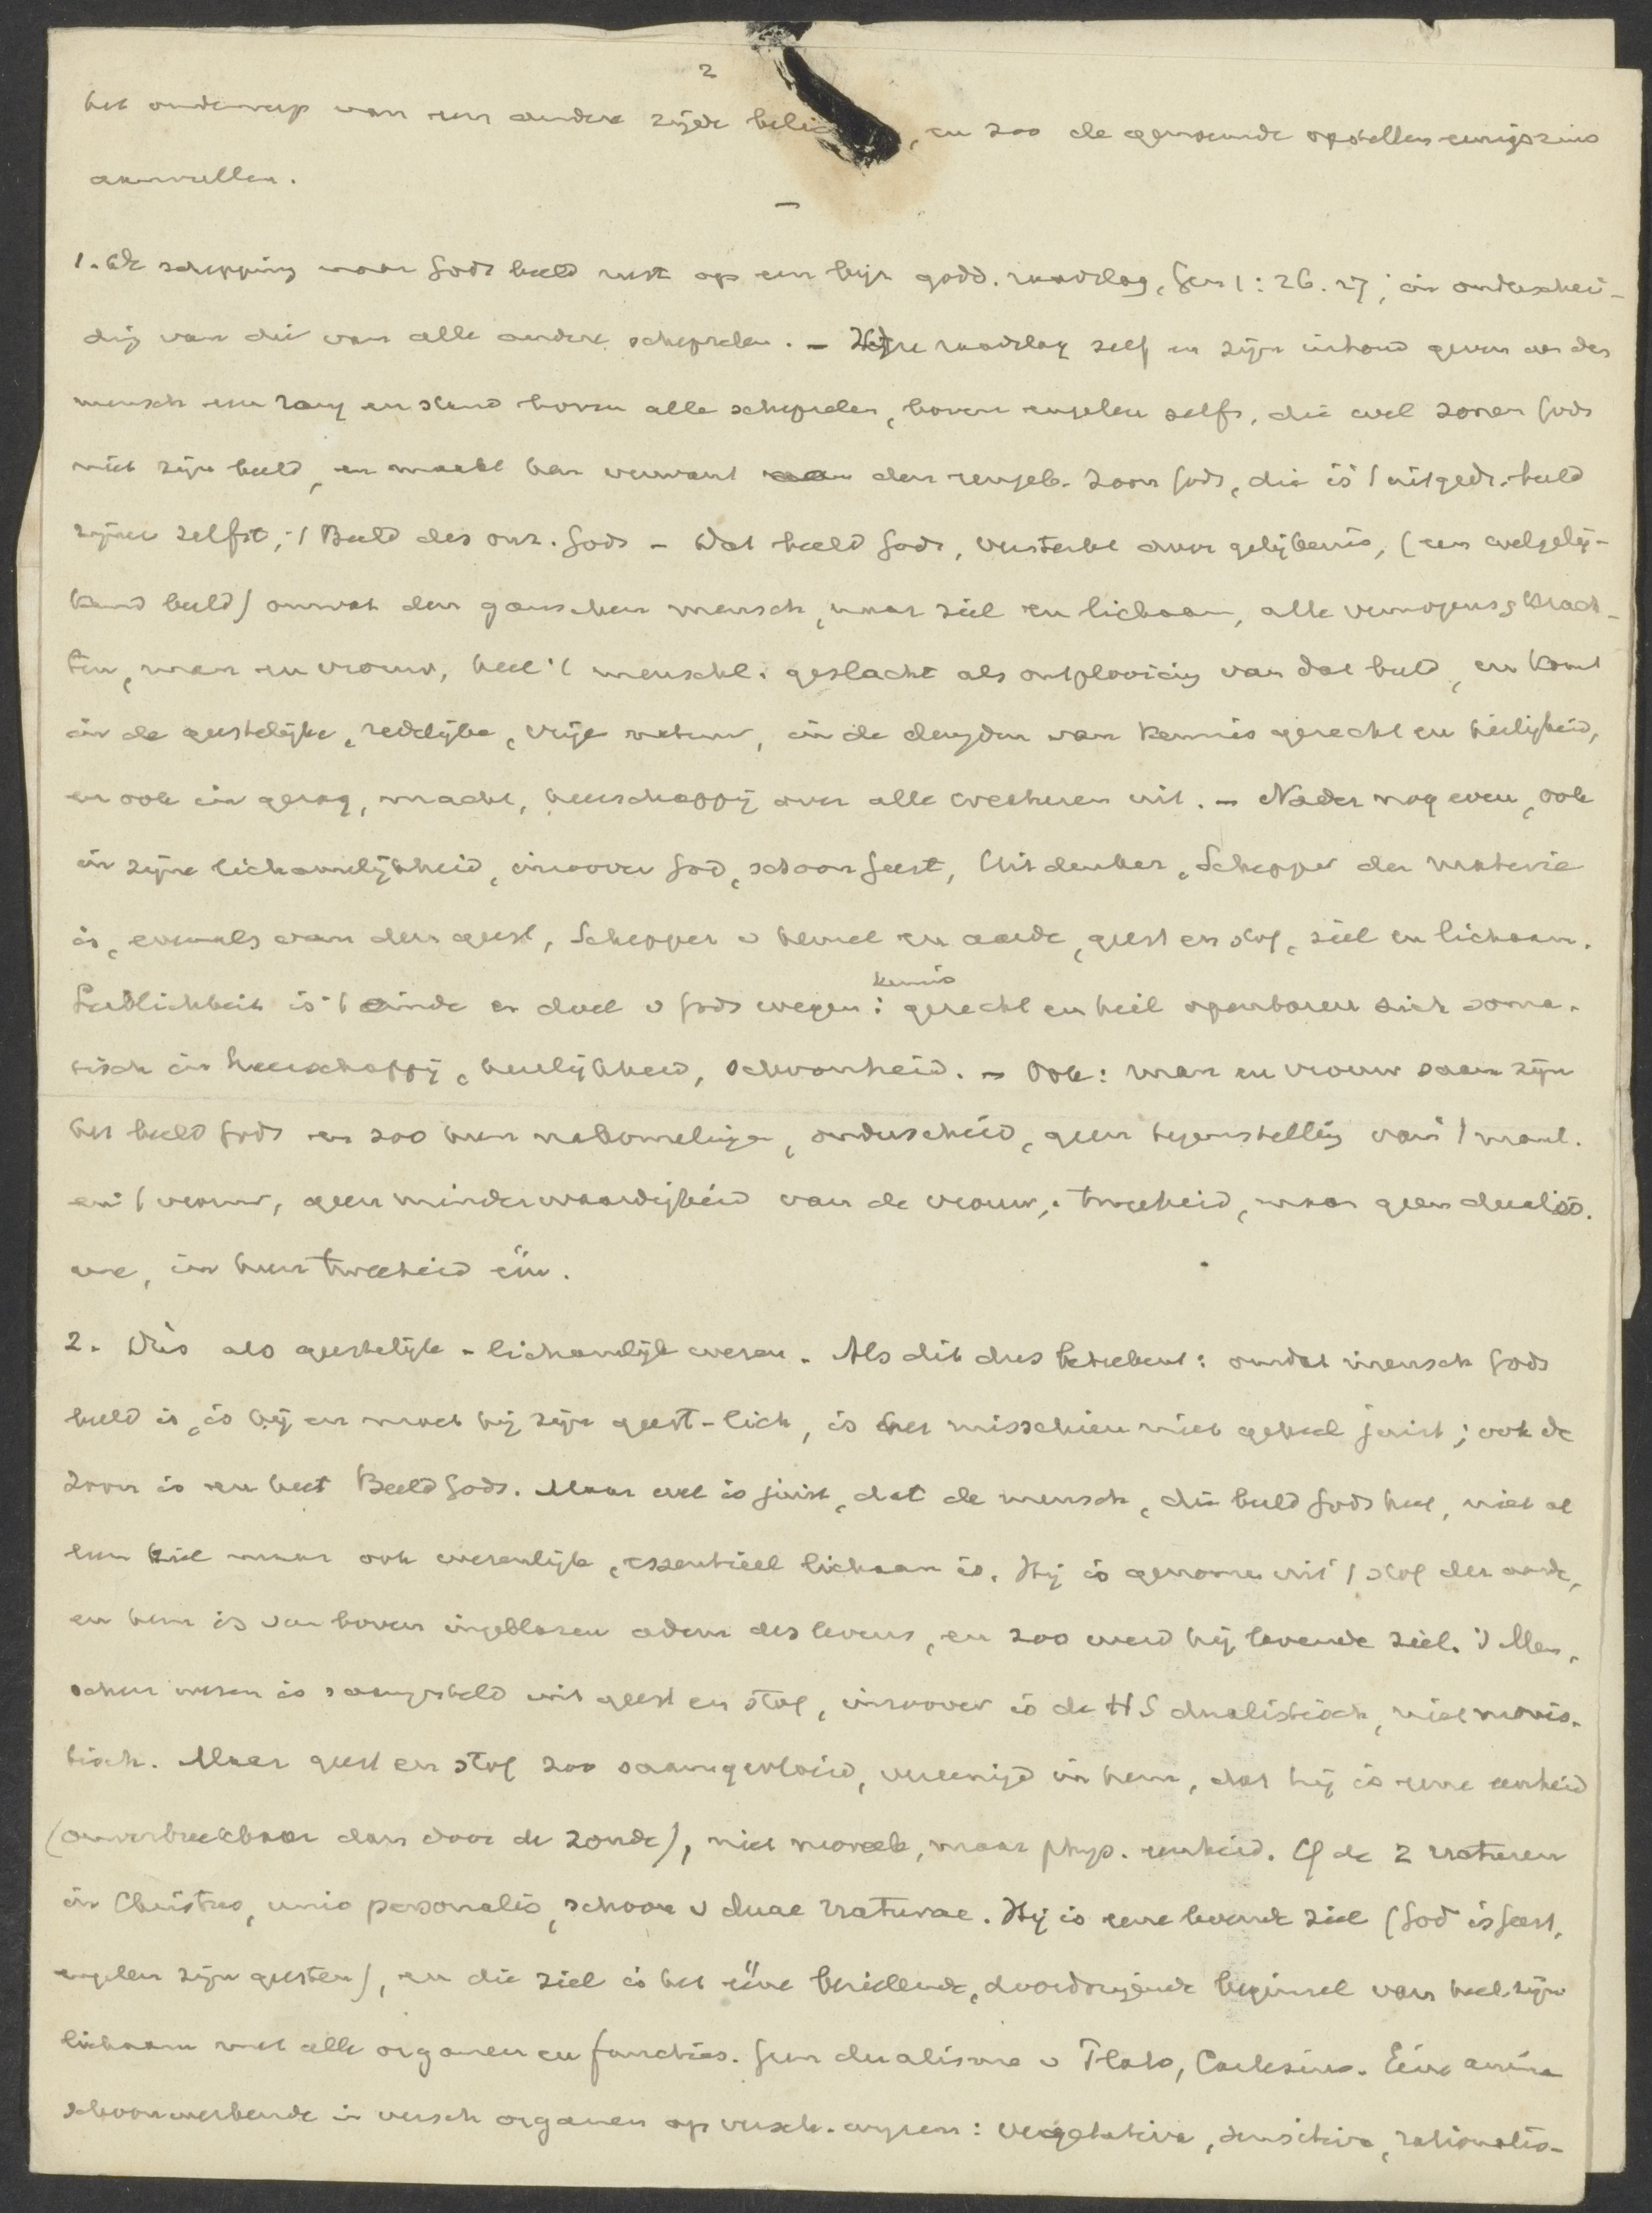 2
het onderwerp van een andere zijde belic , en zoo de genoemde opstellen eenigszins
aanvullen.
—
1. De schepping naar Gods beeld rust op een bijz. godd. raadslag, Gen 1:26.27, in onderschei-
ding van die van alle andere schepselen. – Deze raadslag zelf en zijn inhoud geven aan den
mensch een rang en stand boven alle schepselen, boven engelen zelfs, die wel zonen Gods
niet zijn beeld, en maakt hem verwant aan den eengeb. Zoon Gods, die is 't uitgedr. beeld
zijner zelfst, 't Beeld des onz. Gods – Dat beeld Gods, versterkt door gelijkenis, (een welgelij-
kend beeld) omvat den ganschen mensch, naar ziel en lichaam, alle vermogens, krach-
ten, man en vrouw, heel 't menschl. geslacht als ontplooiing van dat beeld, en komt
in de geestelijke, redelijke, vrije natuur, in de deugden van kennis gerecht en heiligheid,
en ook in gezag, macht, heerschappij over alle creaturen uit. – Nader nog even, ook
in zijne lichamelijkheid, inzoover God, schoon Geest, Uitdenker, Schepper der materie
is, evenals van den geest, Schepper v hemel en aarde, geest en stof, ziel en lichaam.
Leiblichkeit is 't einde en doel v Gods wegen: kennis gerecht en heil openbaren zich soma-
tisch in heerschappij, heerlijkheid, schoonheid. – Ook: man en vrouw saam zijn
het beeld Gods en zoo hun nakomelingen, onderscheid, geen tegenstelling van 't manl.
en 't vrouw, geen minderwaardigheid van de vrouw, tweeheid, maar geen dualis-
me, in hun tweeheid één.
2. Dus als geestelijk-lichamelijk wezen. Als dit dus beteekent: omdat mensch Gods
beeld is, is hij en moet hij zijn geest-lich, is het misschien niet geheel juist; ook de
Zoon is en heet Beeld Gods. Maar wel is juist, dat de mensch, die beeld Gods heet, niet al
leen ziel maar ook wezenlijk, essentieel lichaam is. Hij is genomen uit 't stof der aarde,
en hem is van boven ingeblazen adem des levens, en zoo werd hij levende ziel. 's Men-
schen wezen is saamgesteld uit geest en stof, inzoover is de HS dualistisch, niet monis-
tisch. Maar geest en stof zoo saamgevloeid, vereenigd in hem, dat hij is eene eenheid
(onverbreekbaar dan door de zonde), niet moreele, maar phys. eenheid. Cf de 2 naturen
in Christus, unio personalis, schoon v duae naturae. Hij is eene levende ziel (God is Geest,
engelen zijn geesten), en die ziel is het ééne bezielende, doordringende beginsel van heel zijn
lichaam met alle organen en functies. Geen dualisme v Plato, Cartesius. Eéne anima
schoon werkende in versch organen op versch. wijzen: vegetativa, sensitiva, rationalis-